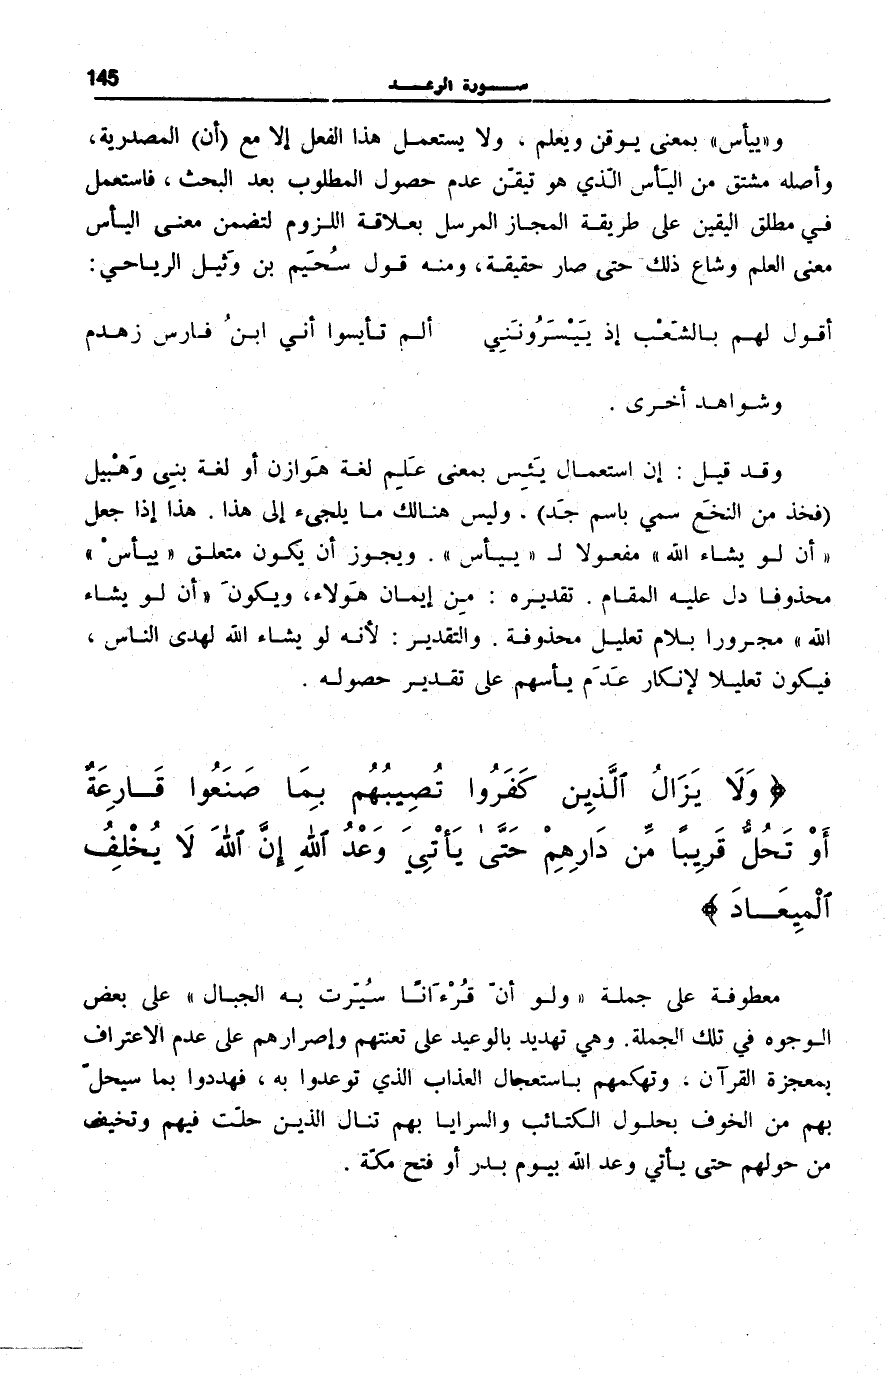 145
سورة الرعد
و«ييأس» بمعنى يوقن ويعلم ، ولا يستعمل هذا الفعل إلا مع (أن) المصدرية،
وأصله مشتق من اليَأس الّذي هو تيقّن عدم حصول المطلوب بعد البحث ، فاستعمل
في مطلق اليقين على طريقة المجاز المرسل بعلاقة اللزوم لتضمن معنى اليأس
معنى العلم وشاع ذلك حتى صار حقيقة، ومنه قول سُحَيم بن وَثيل الرياحي:
أقول لهم بالشّعْب إذ يَيْسَرُونَنِي ألم تأيسوا أني ابنُ فارس زهدم
وشواهد أخرى .
وقد قيل : إن استعمال يَئِس بمعنى عَلِم لغة هَوازن أو لغة بنِي وَهْبيل
(فخذ من النخَع سمي باسم جَد) . وليس هنالك ما يلجىء إلى هذا . هذا إذا جعل
« أن لو يشاء الله » مفعولا لـ « ييأس » . ويجوز أن يكون متعلق « ييأسْ »
محذوفا دل عليه المقام . تقديره : مِن إيمان هَولاء، ويكونَ «أن لو يشاء
الله » مجرورا بلام تعليل محذوفة . والتقدير : لأنه لو يشاء الله لهدى الناس ،
فيكون تعليلا لإنكار عَدَم يأسهم على تقدير حصوله .
﴿ وَلَا يَزَالُ ٱلَّذِينَ كَفَرُوا تُصِيبُهُم بِمَا صَنَعُوا قَارِعَةٌ
أَوْ تَحُلُّ قَرِيبًا مِّن دَارِهِمْ حَتَّىٰ يَأْتِيَ وَعْدُ ٱللهِ إِنَّ ٱللهَ لَا يُخْلِفُ
ٱلْمِيعَادَ ﴾
معطوفة على جملة « ولو أنّ قُرْءَانًا سُيّرت به الجبال » على بعض
الوجوه في تلك الجملة. وهي تهديد بالوعيد على تعنتهم وإصرارهم على عدم الاعتراف
بمعجزة القرآن ، وتهكمهم باستعجال العذاب الذي توعدوا به ، فهددوا بما سيحلّ
بهم من الخوف بحلول الكتائب والسرايا بهم تنال الذين حلّت فيهم وتخيف
من حولهم حتى يأتي وعد الله بيوم بدر أو فتح مكّة .